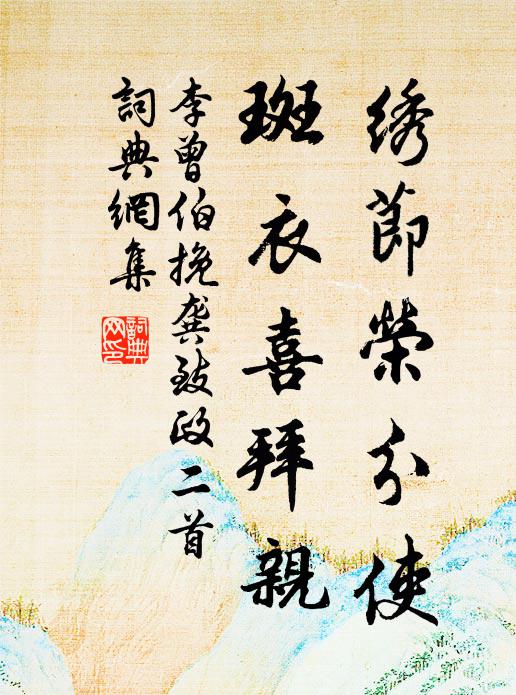 绣節榮分使
斑衣喜拜親
李曾伯挽龔致政二首
詞典網集
詞典网印